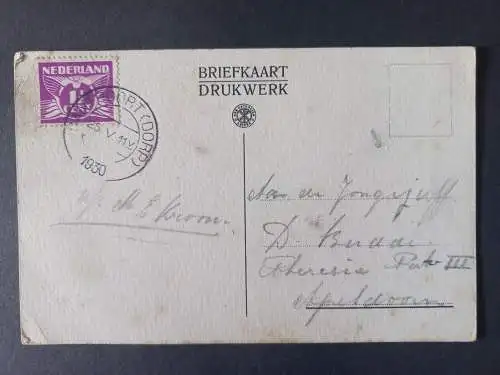 NEDERLAND
1½
CENT
OORT (DORP)
V 11V
1930
BRIEFKAART
DRUKWERK
Aan de Jongejuff
D.
Theresia Park III
Apeldoorn